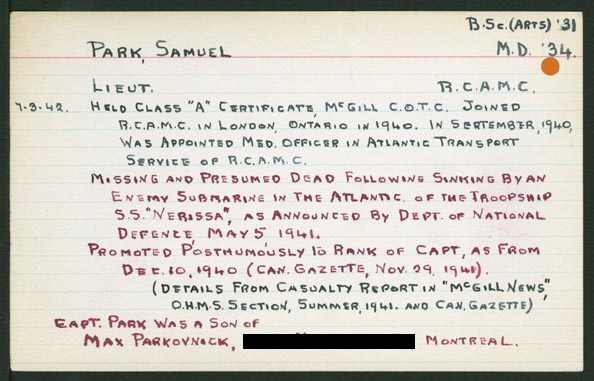 B.Sc.(ARTS) '31
PARK, SAMUEL M.D. '34.
LIEUT. R.C.A.M.C.
7-3-42. HELD CLASS "A" CERTIFICATE, MCGILL C.O.T.C. JOINED
R.C.A.M.C. IN LONDON, ONTARIO IN 1940. IN SEPTEMBER, 1940,
WAS APPOINTED MED. OFFICER IN ATLANTIC TRANSPORT
SERVICE OF R.C.A.M.C.
MISSING AND PRESUMED DEAD FOLLOWING SINKING BY AN
ENEMY SUBMARINE IN THE ATLANTIC. OF THE TROOPSHIP
S.S. "NERISSA", AS ANNOUNCED BY DEPT. OF NATIONAL
DEFENCE MAY 5, 1941.
PROMOTED POSTHUMOUSLY TO RANK OF CAPT, AS FROM
DEC. 10, 1940 (CAN. GAZETTE, NOV. 29, 1941).
(DETAILS FROM CASUALTY REPORT IN "MCGILL NEWS",
O.H.M.S. SECTION, SUMMER, 1941. AND CAN. GAZETTE)
CAPT. PARK WAS A SON OF
MAX PARKOVNICK, MONTREAL.